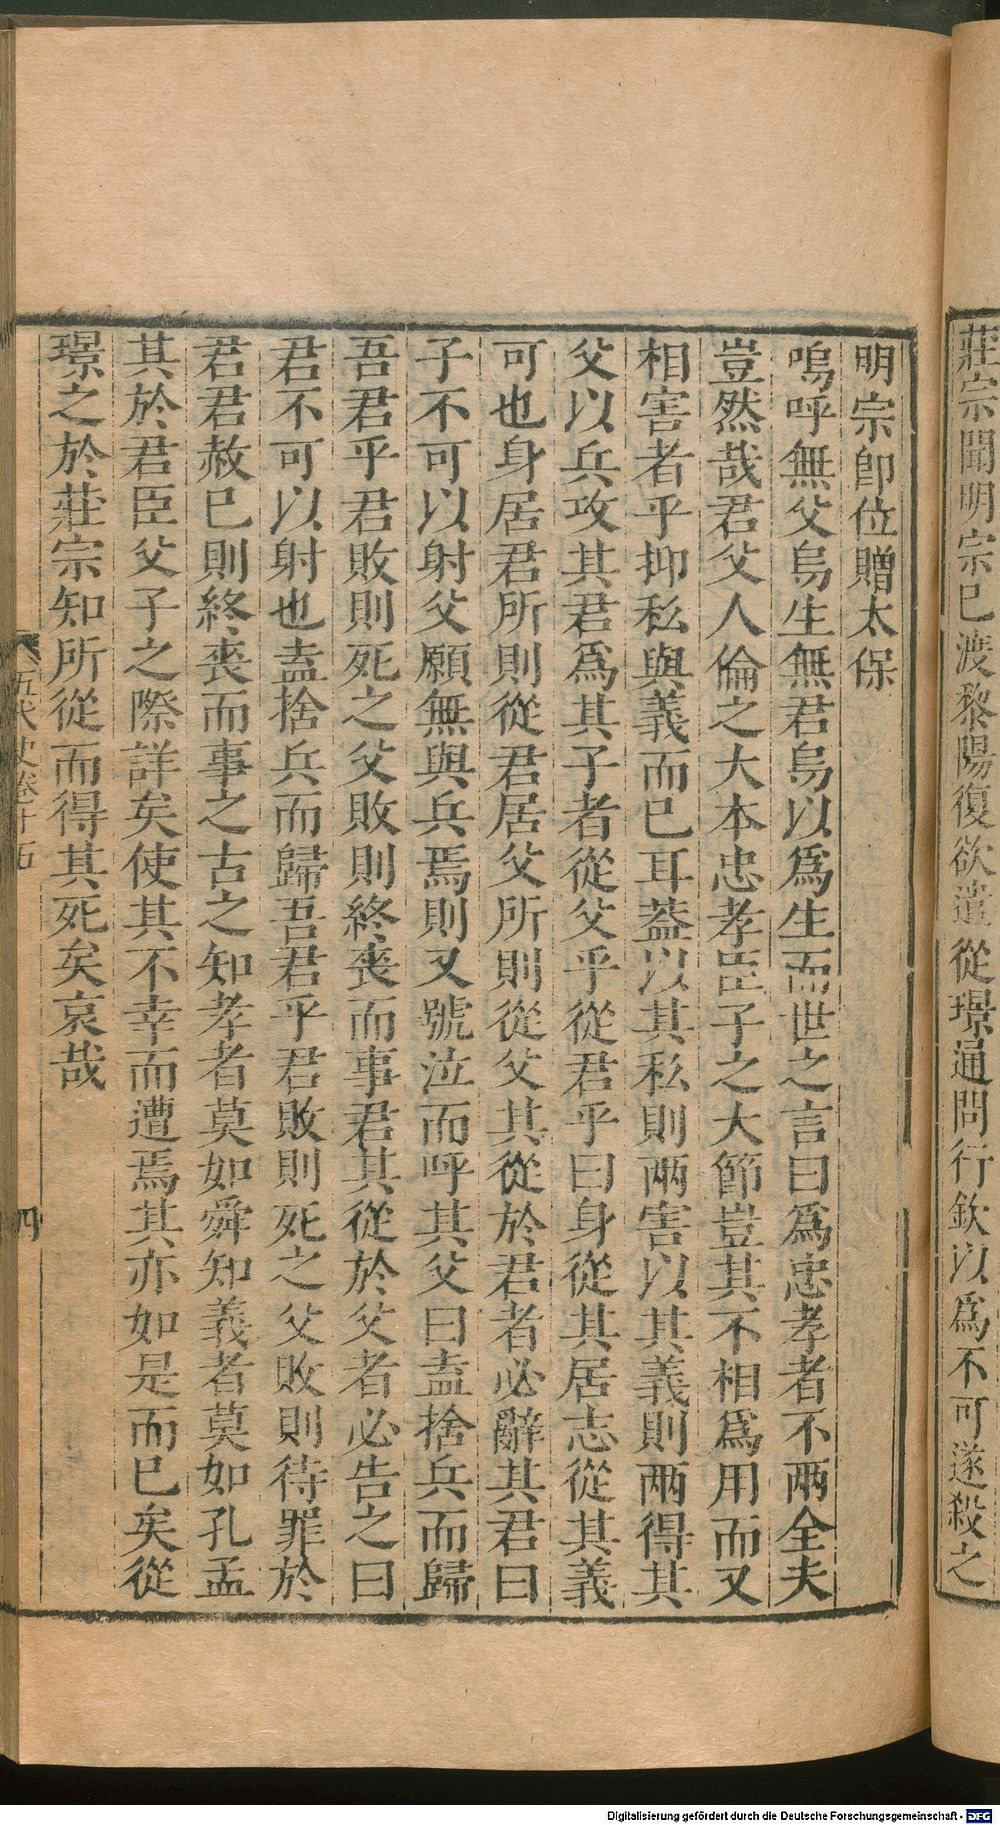 莊宗聞明宗已渡黎陽復欲遣從璟通問行欽以爲不可遂殺之
明宗卽位贈太保
嗚呼無父烏生無君烏以爲生而世之言曰爲忠孝者不兩全夫
豈然哉君父人倫之大本忠孝臣子之大節豈其不相爲用而又
相害者乎抑私與義而已耳葢以其私則兩害以其義則兩得其
父以兵攻其君爲其子者從父乎從君乎曰身從其居志從其義
可也身居君所則從君居父所則從父其從於君者必辭其君曰
子不可以射父願無與兵焉則又號泣而呼其父曰盍捨兵而歸
吾君乎君敗則死之父敗則終喪而事君其從於父者必告之曰
君不可以射也盍捨兵而歸吾君乎君敗則死之父敗則待罪於
君君赦已則終喪而事之古之知孝者莫如舜知義者莫如孔孟
其於君臣父子之際詳矣使其不幸而遭焉其亦如是而已矣從
璟之於莊宗知所從而得其死矣哀哉
五代史卷十五
四
Digitalisierung gefördert durch die Deutsche Forschungsgemeinschaft - DFG